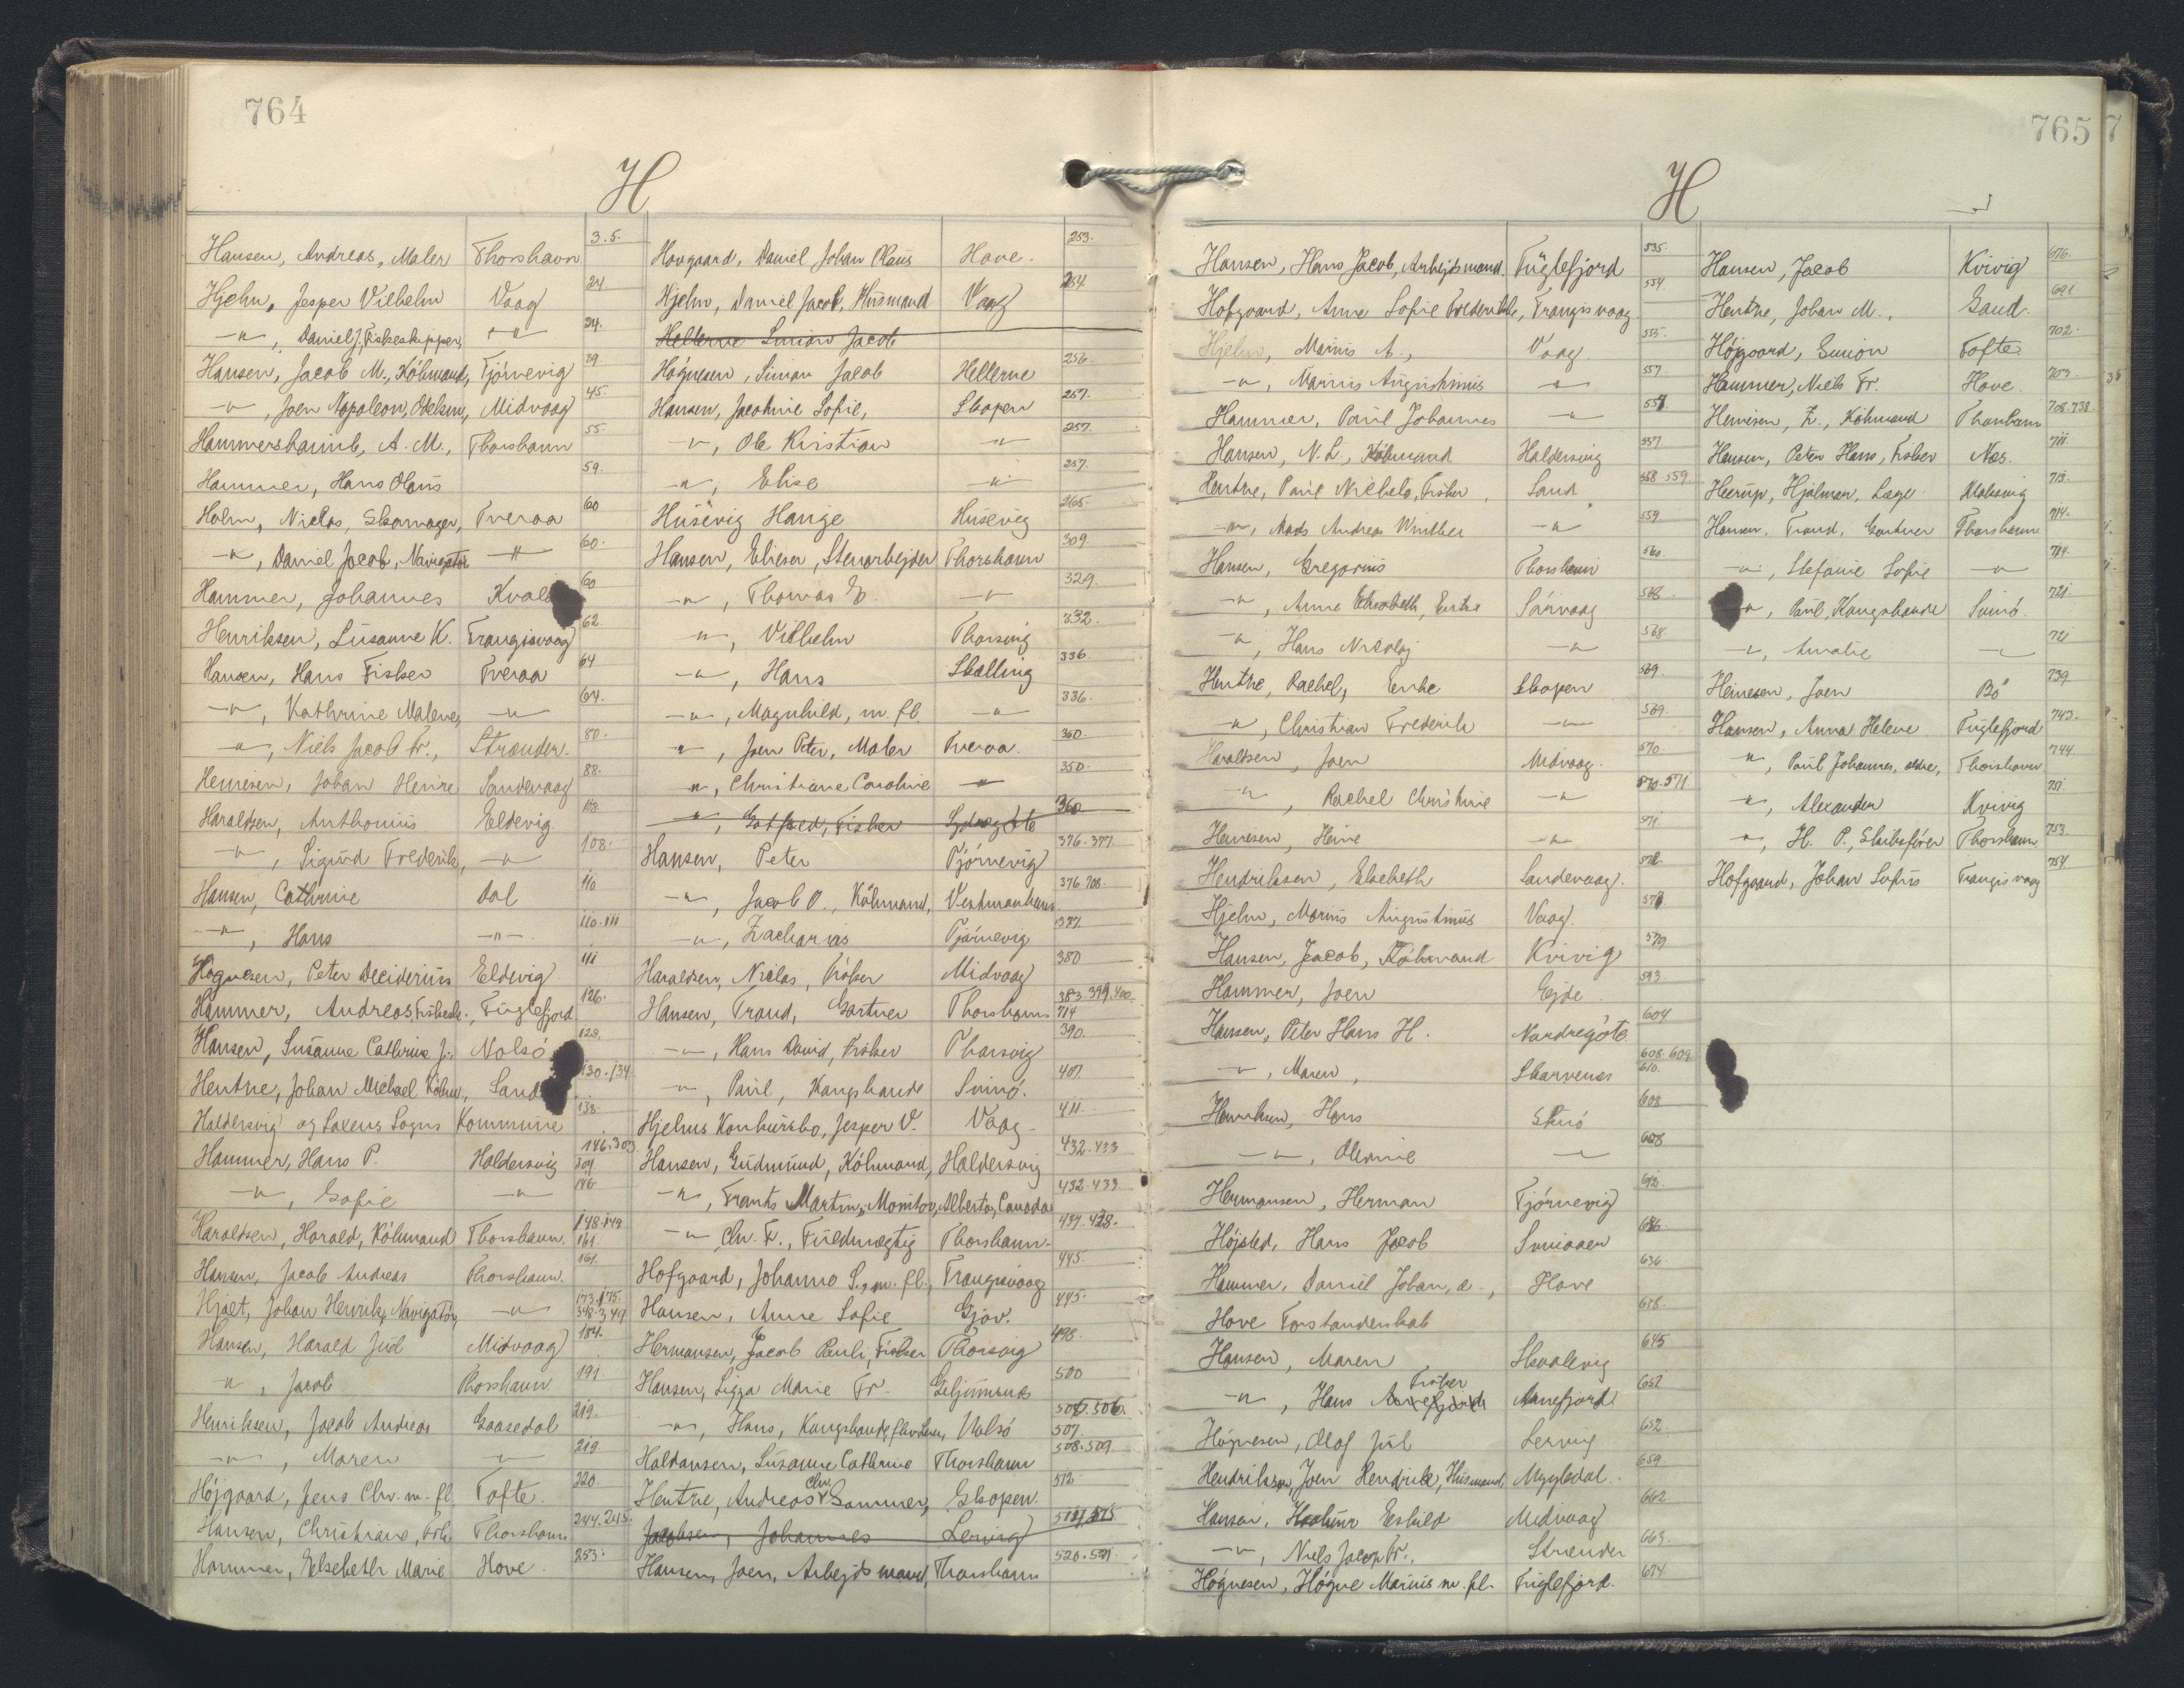 764
H
Hansen, Andreas, Maler Thorshavn 3.5.
Hjelm, Jesper Vilhelm Vaag 24
-"-, Daniel J. Fiskeskipper, -"- 24.
Hansen, Jacob M., Köbmand, Tjörnevig 39
-"-, Joen Napoleon, Midvaag 45.
Hammershaimb, A. M., Thorshavn 55.
Hammer, Hans Olaus 59.
Holm, Niclas, Skomager, Tveraa 60
-"-, Daniel Jacob, Navigatör -"- 60.
Hammer, Johannes 60
Henriksen, Susanne K. Trangisvaag 62.
Hansen, Hans Fisker Tveraa 64
-"-, Kathrine Malene, -"- 64.
-"-, Niels Jacob Fr., Strænder. 80.
Heinesen, Johan Heine Sandevaag 88.
Haraldsen, Anthonius Eldevig 108
-"-, Sigurd Frederik, -"- 108.
Hansen, Cathrine Dal 110
-"-, Hans -"- 110.111
Högnesen, Peter Deciderius Eldevig 111
Hammer, Andreas, Fuglefjord 126.
Hansen, Susanne Cathrine J. Nolsö 128.
Hentze, Johan Michael Köbm, Sand 130.134
Haldersvig og Saxens Sogns Kommune 138.
Hammer, Hans P. Haldersvig 146.303 304
-"-, Sofie -"- 146
Haraldsen, Harald, Köbmand Thorshavn. 148.149 161.
Hansen, Jacob Andreas Thorshavn. 161.
Hjalt, Johan Henrik, Navigatör, -"- 173.175. 348.349
Hansen, Harald Juul Midvaag 184.
-"-, Jacob Thorshavn 191.
Henriksen, Jacob Andreas Gaasedal 219.
-"-, Maren -"- 219
Höjgaard, Jens Chr. m. fl. Tofte. 220.
Hansen, Christiane, Frk. Thorshavn 244.245.
Hammer, Elsebeth Marie Hove. 253.
Hovgaard, Daniel Johan Olaus Hove. 253.
Hjelm, Daniel Jacob, Husmand Vaag 254
Hellerne Simon Jacob
Högnesen, Simon Jacob Hellerne 256.
Hansen, Jacobine Sofie, Skopen 257.
-"-, Ole Kristian -"- 257.
-"-, Elise -"- 257.
Husevig Hange Husevig 265.
Hansen, Elieser, Stenarbejder Thorshavn 309.
-"-, Thomas E. -"- 329.
-"-, Vilhelm Thorsvig 332.
-"-, Hans Skælling 336.
-"-, Magnhild, m. fl. -"- 336.
-"-, Joen Peter, Maler Tveraa. 350.
-"-, Christiane Caroline -"- 350.
-"-, Gotfred, Fisker Sydregöte 360
Hansen, Peter Tjörnevig 376.377.
-"-, Jacob O., Köbmand, Vestmanhavn 376.708.
-"-, Zacharias Tjörnevig 377.
Haraldsen, Niclas, Fisker Midvaag 380
Hansen, Trond, Gartner Thorshavn 383.399.400. 714
-"-, Hans David, Fisker Thorsvig 390.
-"-, Paul, Kongsbonde Svinö. 407
Hjelms Konkursbo, Jesper V. Vaag. 411.
Hansen, Gudmund, Köbmand, Haldersvig 432.433
-"-, Frants Martin, Monitor, Alberta, Canada 432.433.
-"- Chr. F., Fuldmægtig Thorshavn. 437.438.
Hofgaard, Johanne S., m. fl., Trangisvaag 445.
Hansen, Anne Sofie Gjov. 445.
Hermansen, Jacob Pauli, Fisker Thorsvig 498.
Hansen, Sigga Marie Fr. 500
-"-, Hans, Kongsbonde, Nolsö 505.506. 507
Haldansen, Susanne Cathrine Thorshavn 508.509
Hentze, Andreas Chr. Sommer, Skopen. 512.
Jacobsen, Johannes Lervig 514.515
Hansen, Joen, Arbejdsmand, Thorshavn 520.521.
765
H
Hansen, Hans Jacob, Arbejdsmand Fuglefjord 535.
Hofgaard, Anne Sofie Frederikke, Trangisvaag 554.
Hjelm, Mainis A., Vaag 555.
-"-, Marius Augustinus -"- 557.
Hammer, Paul Johannes -"- 557.
Hansen, N. L., Köbmand Haldersvig 557
Hentze, Paul Nickels, Fisker, Sand 558 559
-"-, Mads Andreas Winther -"- 559
Hansen, Gregorius Thorshavn 560.
-"-, Anne Elisabeth, Enke Sörvaag 568.
-"-, Hans Nicolaj -"- 568.
Hentze, Rachel, Enke Skopen 569.
-"-, Christian Frederik -"- 569.
Haraldsen, Joen Midvaag. 570
-"-, Rachel Christine -"- 570.571
Heinesen, Heine -"- 571
Hendriksen, Elsebeth Sandevaag. 572.
Hjelm, Marius Augustinus Vaag. 578
Hansen, Jacob, Köbmand Kvivig 579
Hammer, Joen Ejde 593
Hansen, Peter Hans H. Nordregöte 604
-"-, Maren, Skarvenes 608.609 610.
Henriksen, Hans Skuö 608
-"-, Olevine -"- 608
Hermansen, Herman Tjörnevig 612.
Höjsted, Hans Jacob 636.
Hammer, Daniel Johan, d-, Hove 636.
Hove Forstanderskab 638.
Hansen, Maren Skvalevig 645
-"-, Hans Fisker Arnefjord 651
Högnesen, Olaf Jul Lervig 652.
Hendriksen, Joen Hendrik, Husmand, Mygledal. 659.
Hansen, Eskild Midvaag 662
-"-, Niels Jacop Fr., Strænder 663.
Högnesen, Högne Marius m. fl. Fuglefjord. 674.
Hansen, Jacob Kvivig 676.
Hentze, Johan M., Sand. 691
Höjgaard, Simon Tofte. 702.
Hammer, Niels Fr. Hove. 703
Heinesen, Z., Köbmand Thorshavn 708.738.
Hansen, Peter Hans, Fisker Næs. 711.
Heerup, Hjalmar, Læge. Klaksvig 713.
Hansen, Trond, Gartner Thorshavn 714.
-"-, Stefanie Sofie -"- 714.
-"-, Paul, Kongsbonde Svinö. 721.
-"-, Amalie -"- 721
Heinesen, Joen Bö 739
Hansen, Anna Helene Fuglefjord 743.
-"-, Paul Johannes, ældre, Thorshavn 744.
-"-, Alexander Kvivig 751.
-"-, H. P., Skibsförer Thorshavn 753.
Hofgaard, Johan Sofus Trangisvaag 754